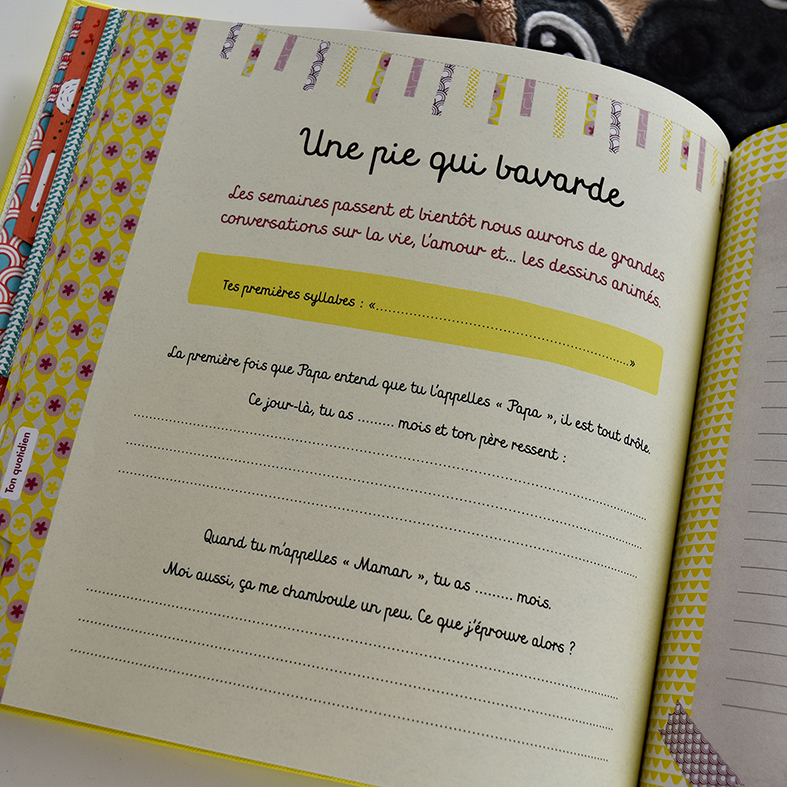 Une pie qui bavarde
Les semaines passent et bientôt nous aurons de grandes
conversations sur la vie, l'amour et... les dessins animés.
Tes premières syllabes : «..............................................................»
La première fois que Papa entend que tu l'appelles « Papa », il est tout drôle.
Ce jour-là, tu as ......... mois et ton père ressent :
Quand tu m'appelles « Maman », tu as ......... mois.
Moi aussi, ça me chamboule un peu. Ce que j'éprouve alors ?
Ton quotidien